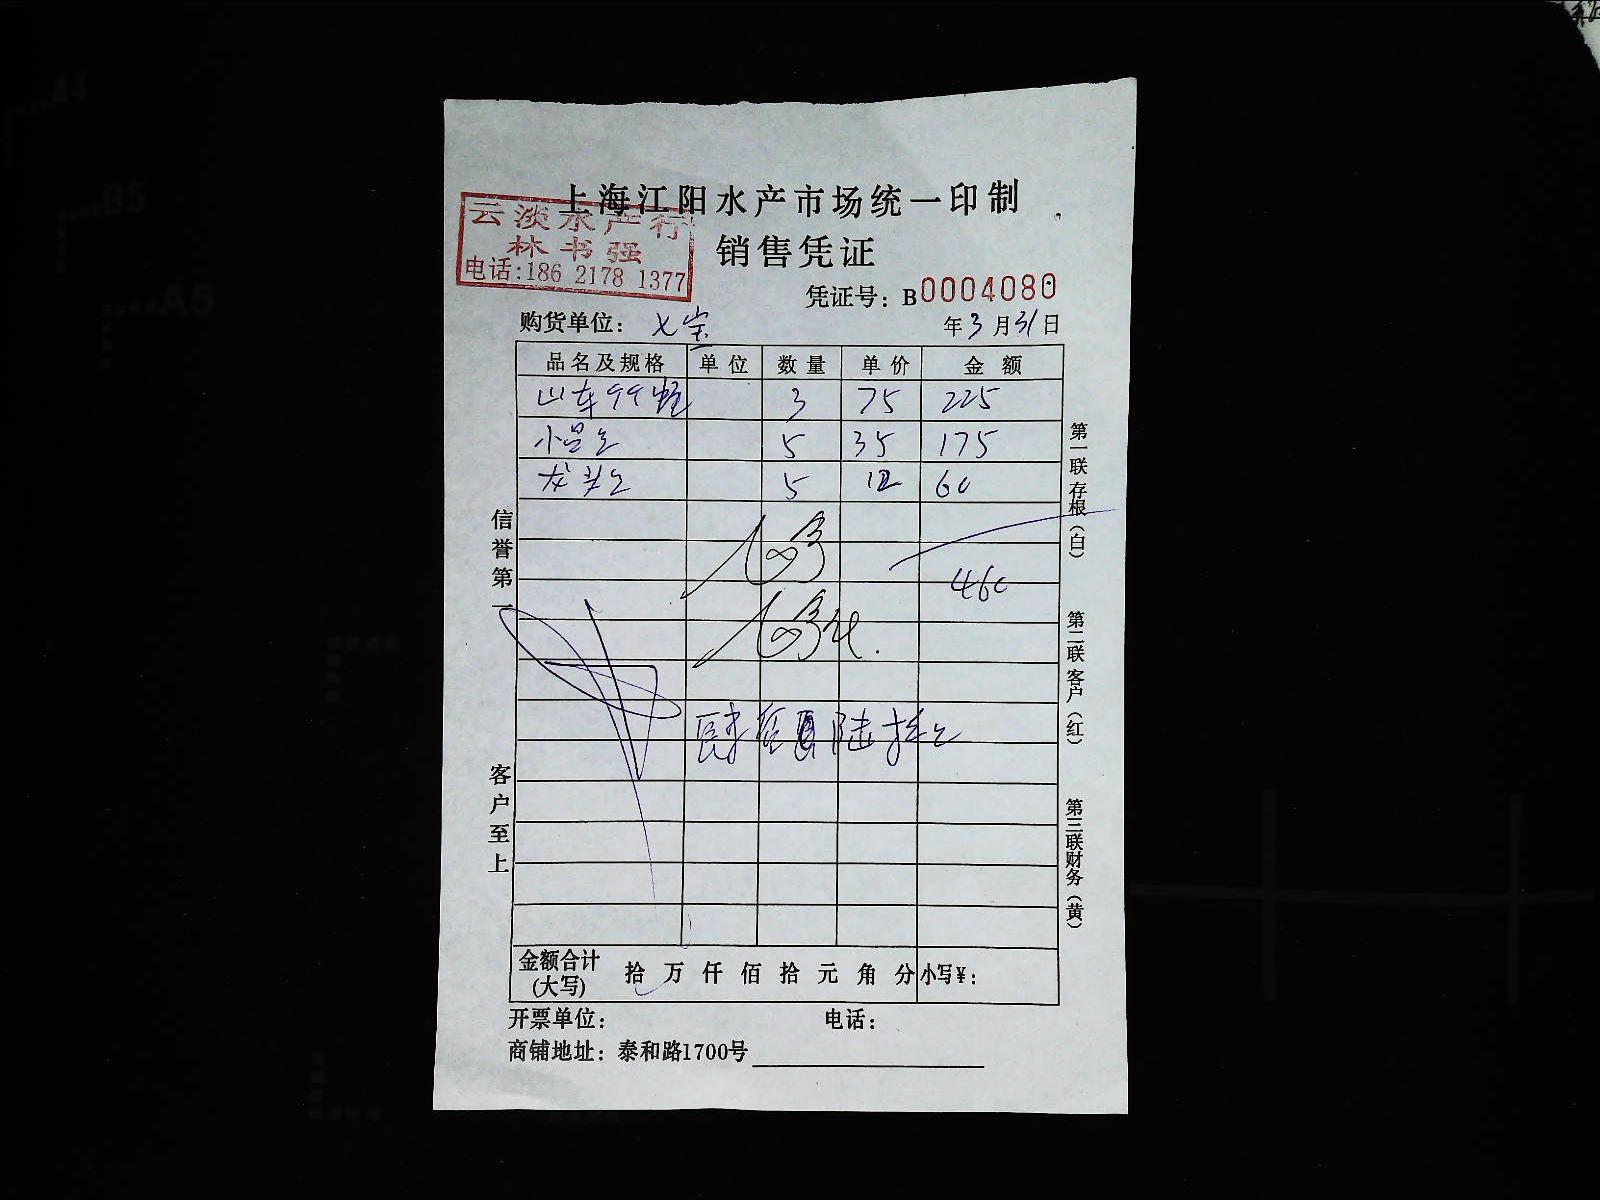 上海江阳水产市场统一印制
云淡水产行
林书强
电话:186 2178 1377
销售凭证
凭证号: B0004080
购货单位: 七宝
年3月31日
品名及规格 单位 数量 单价 金额
山东99 3 75 225
小 5 35 175
龙头 5 12 60
460
肆佰陆拾
信誉第一
客户至上
第一联存根(白)
第二联客户(红)
第三联财务(黄)
金额合计(大写) 拾万仟佰拾元角分 小写¥:
开票单位: 电话:
商铺地址: 泰和路1700号